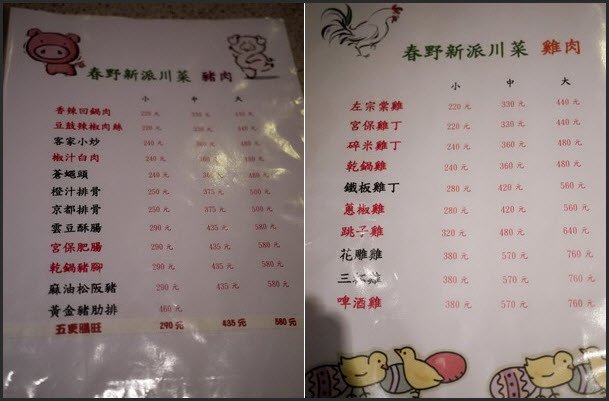 春野新派川菜 豬肉
小 中 大
香辣回鍋肉 220 元 330 元 440 元
豆豉辣椒肉絲 220 元 330 元 440 元
客家小炒 240 元 360 元 480 元
椒汁白肉 240 元 360 元 480 元
蒼蠅頭 240 元 360 元 480 元
橙汁排骨 250 元 375 元 500 元
京都排骨 250 元 375 元 500 元
雲豆酥腸 290 元 435 元 580 元
宮保肥腸 290 元 435 元 580 元
乾鍋豬腳 290 元 435 元 580 元
麻油松阪豬 290 元 435 元 580 元
黃金豬肋排 460 元
五更腸旺 290 元 435 元 580 元
春野新派川菜 雞肉
小 中 大
左宗棠雞 220 元 330 元 440 元
宮保雞丁 220 元 330 元 440 元
碎米雞丁 240 元 360 元 480 元
乾鍋雞 240 元 360 元 480 元
鐵板雞丁 280 元 420 元 560 元
蔥椒雞 280 元 420 元 560 元
跳子雞 320 元 480 元 640 元
花雕雞 380 元 570 元 760 元
三 雞 380 元 570 元 760 元
啤酒雞 380 元 570 元 760 元